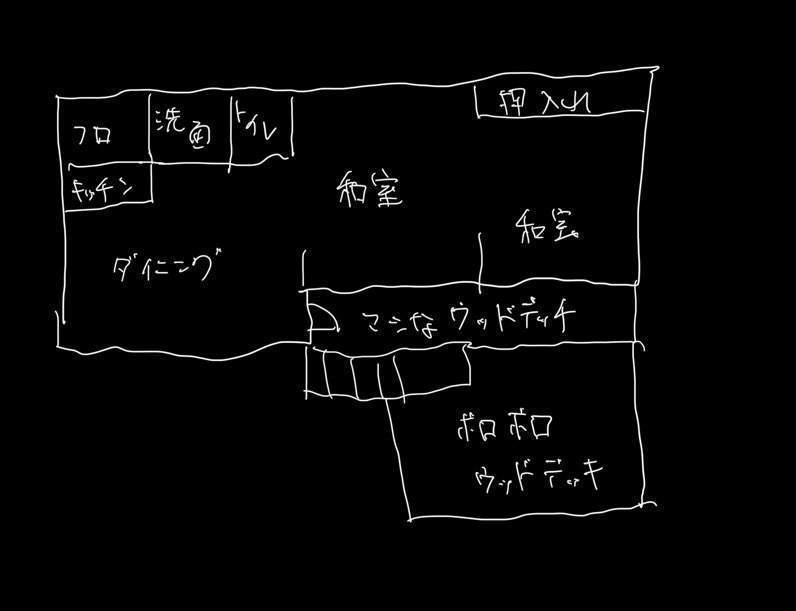 フロ
洗面
トイレ
押入れ
キッチン
和室
和室
ダイニング
マシなウッドデッキ
ボロボロ
ウッドデッキ